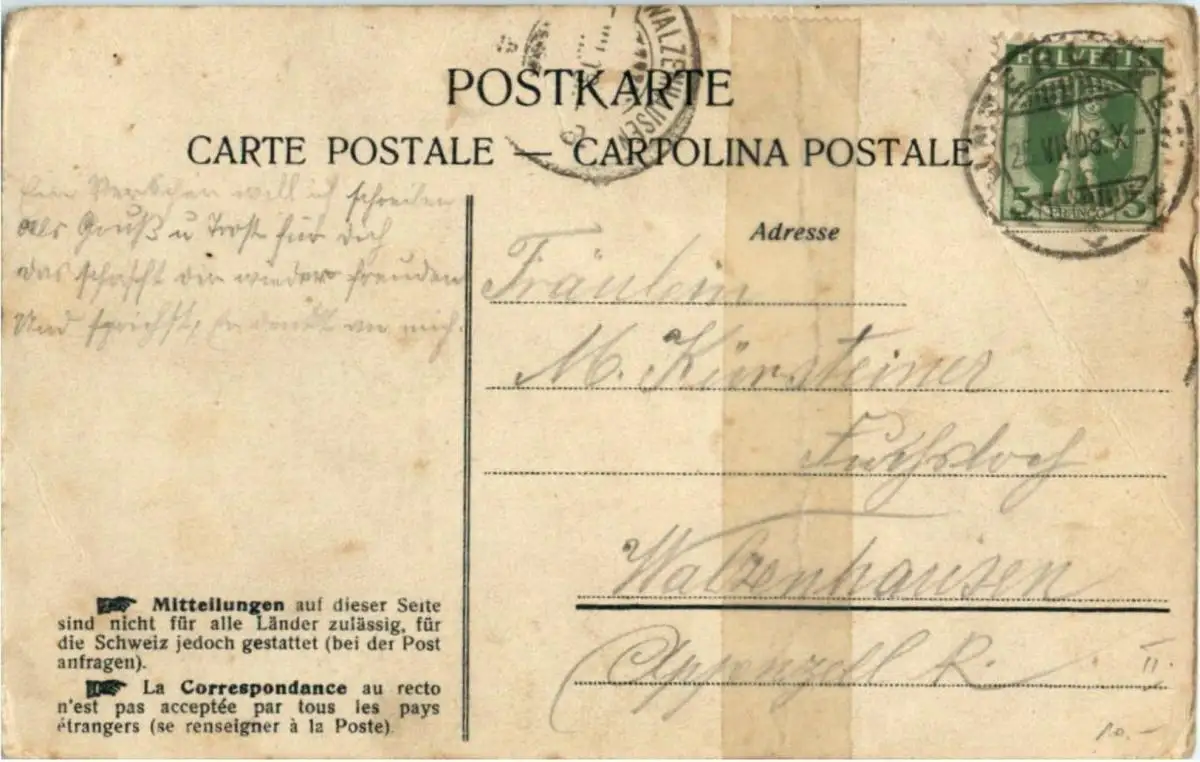 WALZENHAUSEN
POSTKARTE
CARTE POSTALE — CARTOLINA POSTALE
HELVETIA
25. VII. 08. X-
5 FRANCO 5
Ein Verschen will ich schreiben
Als Gruß u Trost für Dich
Das schafft dir wieder Freuden
Und sprichst, er denkt an mich.
Adresse
Fräulein
M. Kürsteiner
Fuchsloch
Walzenhausen
Appenzell
Mitteilungen auf dieser Seite
sind nicht für alle Länder zulässig, für
die Schweiz jedoch gestattet (bei der Post
anfragen).
La Correspondance au recto
n'est pas acceptée par tous les pays
étrangers (se renseigner à la Poste)
10.-